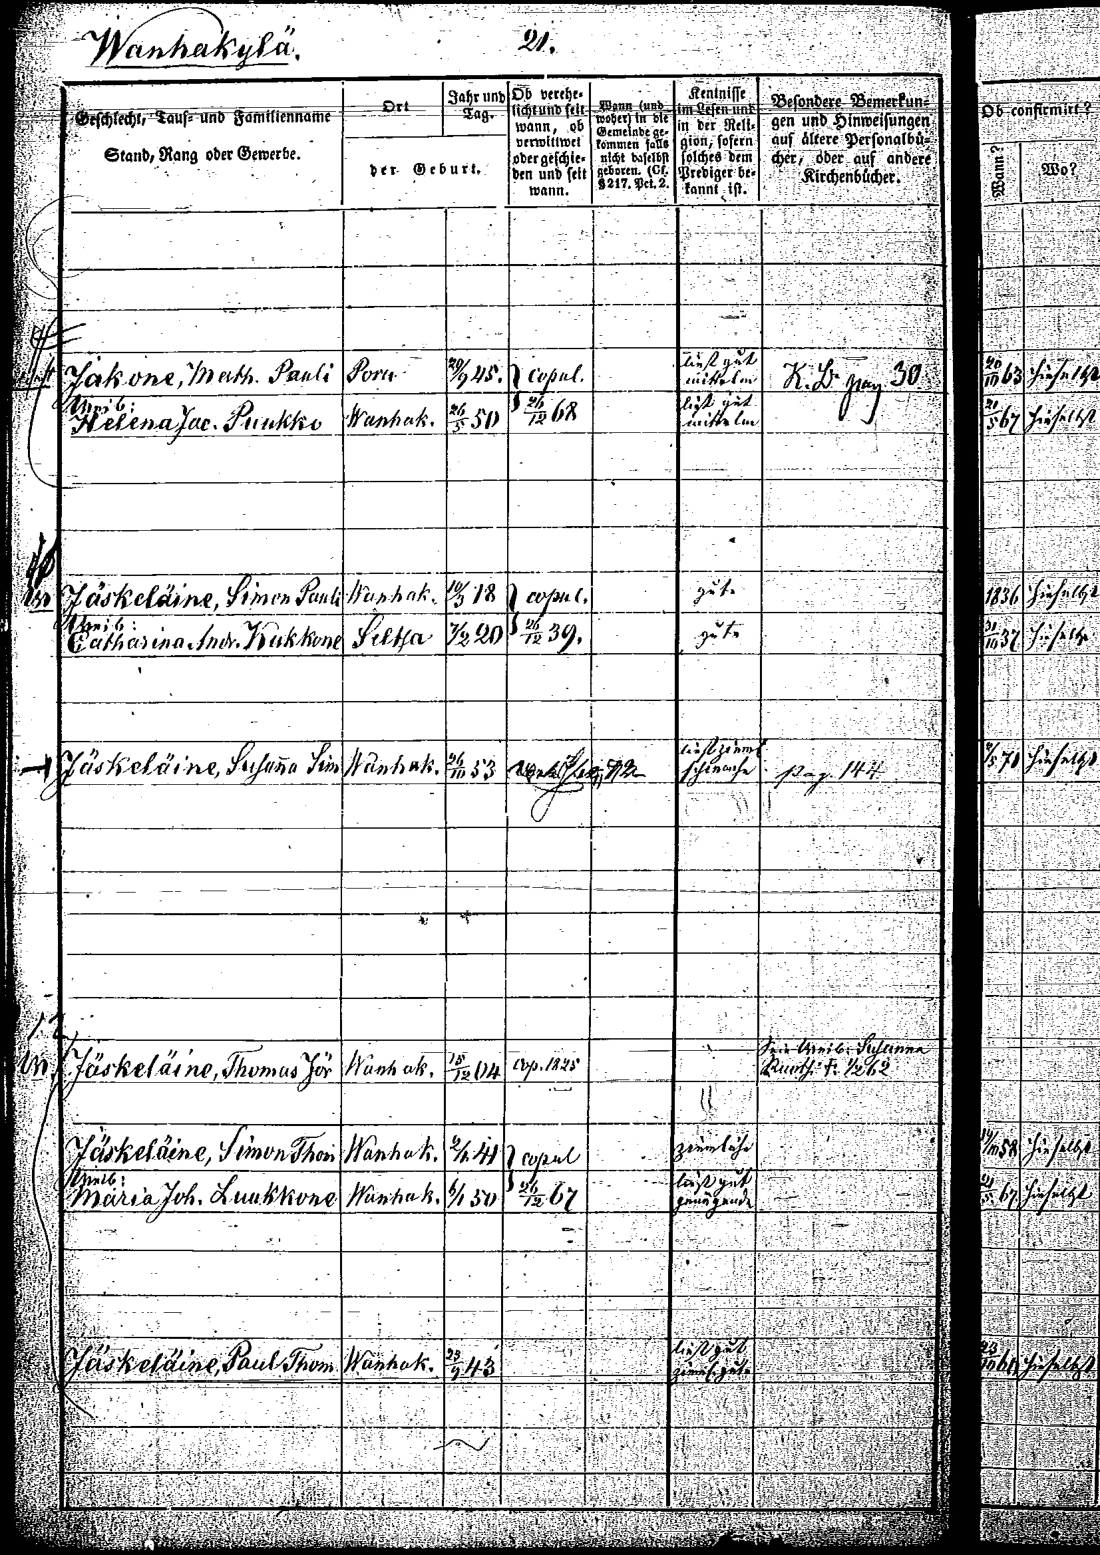 Wanhakylä. 21.
Geschlecht, Tauf- und Familienname
Stand, Rang oder Gewerbe.
Ort
Jahr und
Tag.
der Geburt.
Ob verehe-
licht und seit
wann, ob
verwittwet
oder geschie-
den und seit
wann.
Wann (und
woher) in die
Gemeinde ge-
kommen falls
nicht daselbst
geboren. (Cf.
§ 217. Pct. 2.
Kentnisse
im Lesen und
in der Reli-
gion, sofern
solches dem
Prediger be-
kannt ist.
Besondere Bemerkun-
gen und Hinweisungen
auf ältere Personalbü-
cher, oder auf andere
Kirchenbücher.
Ob confirmirt?
Wann?
Wo?
Jakone, Math. Pauli Poru 29/9 45. copul. liest gut mittelm K. B. pag 30 20/10 63 hieselbst
Weib:
Helena Jac. Puukko Wanhak. 26/5 50 26/12 68 liest gut mittelm 21/5 67 hieselbst
Jäskeläine, Simon Pauli Wanhak. 10/3 18 copul. gute 1836 hieselbst
Weib:
Catharina Andr. Kukkone Seltsa 7/2 20 26/12 39. gute 31/10 37 hieselbst
Jäskeläine, Susanna Sim Wanhak. 26/10 53 72 schwache pag. 144 /5 70 hieselbst
Jäskeläine, Thomas Jör Wanhak. 15/12 04 cop. 1825 Sein Weib: Susanna
Jäskeläine, Simon Thom Wanhak. 2/1 41 copul ziemliche 58 hieselbst
Weib:
Maria Joh. Luukkone Wanhak. 6/1 50 26/12 67 liest gut genügende 21/5 67 hieselbst
Jäskeläine, Paul Thom. Wanhak. 23/9 43 liest gut ziemlich gute 23/10 61 hieselbst